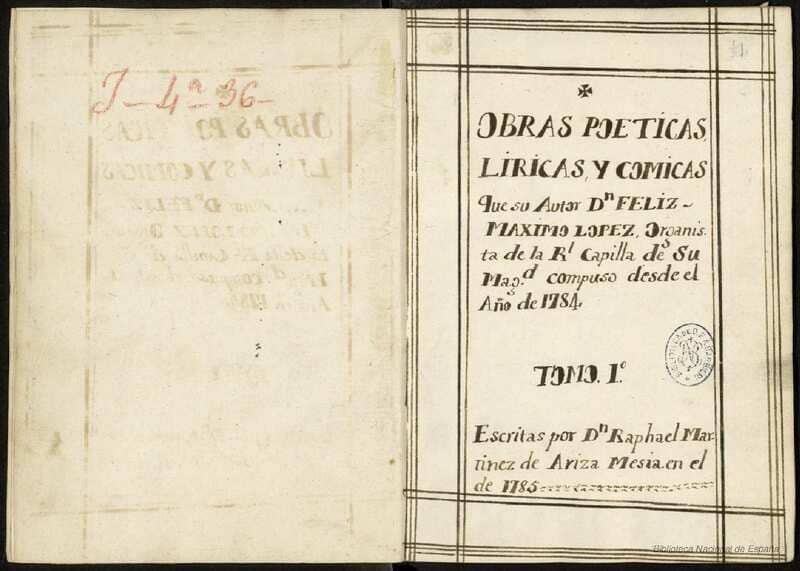 J-4ª-36-
✠
OBRAS POETICAS,
LIRICAS, Y COMICAS
Que su Autor Dⁿ FELIZ-
MAXIMO LOPEZ, Organis-
ta de la Rˡ Capilla de Su
Magᵈ compuso desde el
Año de 1784.
TOMO. 1º
Escritas por Dⁿ Raphael Mar-
tinez de Ariza Mesia en el
de 1785
Biblioteca Nacional de España